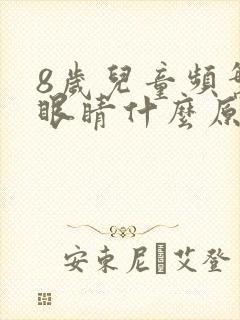 8歲兒童頻繁
眼睛什麼原
安東尼·艾登